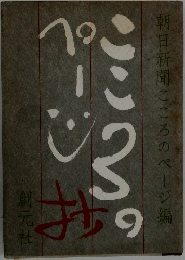 朝日新聞こころのページ編
こころの
ページ
抄
創元社